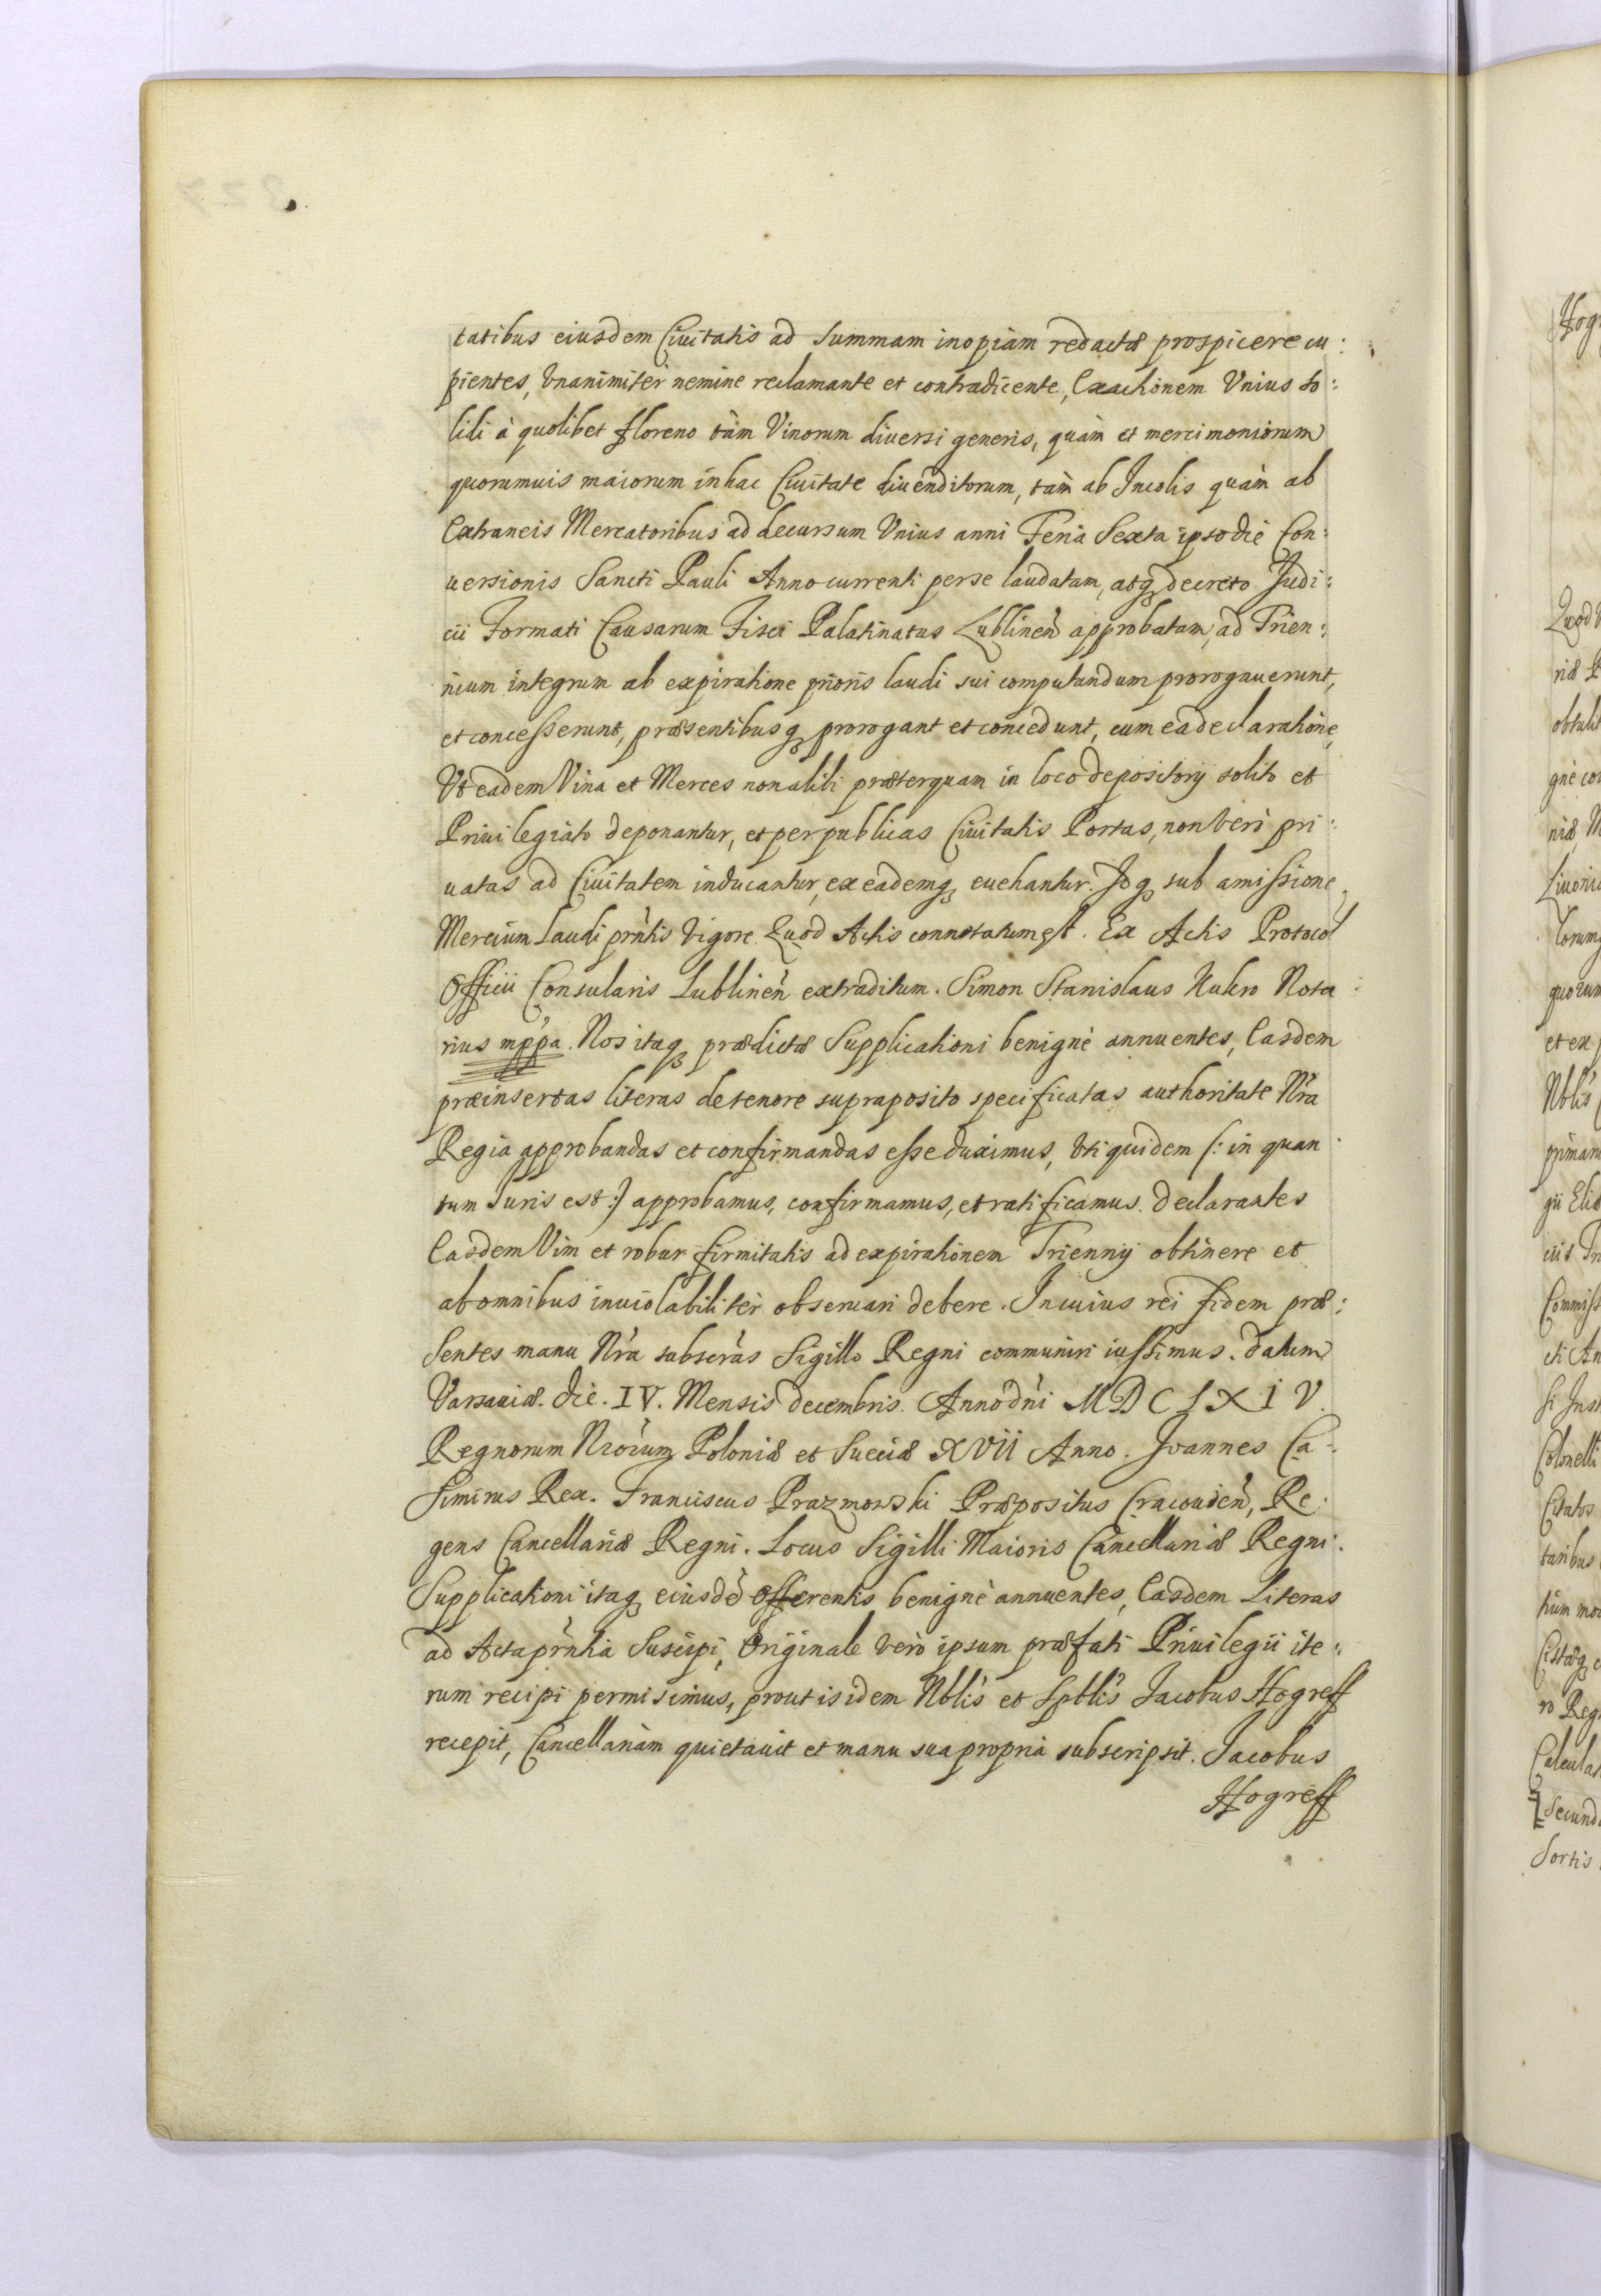 tatibus eiusdem Ciuitatis ad summam inopiam redactæ prospicere cu:
pientes, Vnanimitèr nemine reclamante et contradicente, Exactionem Vnius so:
lidi à quolibet floreno tàm Vinorum diuersi generis, quàm et mercimoniorum
quorumuis maiorum in hac Ciuitate diuenditorum, tam ab Incolis quàm ab
Extraneis Mercatoribus ad decursum Vnius anni Feria Sexta ipso die Con:
uersionis Sancti Pauli Anno currenti per se laudatam, atq decreto Judi:
cii Formati Causarum Fisci Palatinatus Lublineñ approbatam, ad Trien:
nium integrum ab expiratione prioris laudi sui computandum prorogauerunt,
et concesserunt, præsentibusq prorogant et concedunt, cum ea declaratione,
Vt eadem Vina et Merces non alibi præterquam in loco depositorÿ solito et
Priuilegiato deponantur, et per publicas Ciuitatis Portas, non verò pri:
uatas ad Ciuitatem inducantur, ex eademq euehantur. Idq sub amissione
Mercium Laudi prñtis Vigore. Quod Actis connotatum est. Ex Actis Protocol
Officii Consularis Lublineñ extraditum. Simon Stanislaus Kukro Nota:
rius mppa. Nos itaq prædictæ Supplicationi benignè annuentes, Easdem
præinsertas literas de tenore supraposito specificatas authoritate Nr̃a
Regia approbandas et confirmandas esse duximus, Vti quidem (: in quan
tum Juris est:) approbamus, confirmamus, et ratificamus. Declarantes
Easdem Vim et robur firmitatis ad expirationem Triennÿ obtinere et
ab omnibus inuiolabilitèr obseruari debere. In cuius rei fidem præ:
sentes manu Nr̃a subscr̃as Sigillo Regni communiri iussimus. Datum
Varsauiæ. die. IV. Mensis decembris. Anno dñi MDCLXIV.
Regnorum Nrõrum Poloniæ et Sueciæ XVII Anno. Joannes Ca:
simirus Rex. Franciscus Prazmowski Præpositus Cracouieñ, Re:
gens Cancellariæ Regni. Locus Sigilli Maioris Cancellariæ Regni.
Supplicationi itaq eiusdẽ Offerentis benignè annuentes, Easdem Literas
ad Acta prñtia Suscipi, Originale verò ipsum præfati Priuilegii ite:
rum recipi permisimus, prout is idem Nblis et Spblis Jacobus Hogreff
recepit, Cancellariàm quietauit et manu sua propria subscripsit. Jacobus
Hogreff